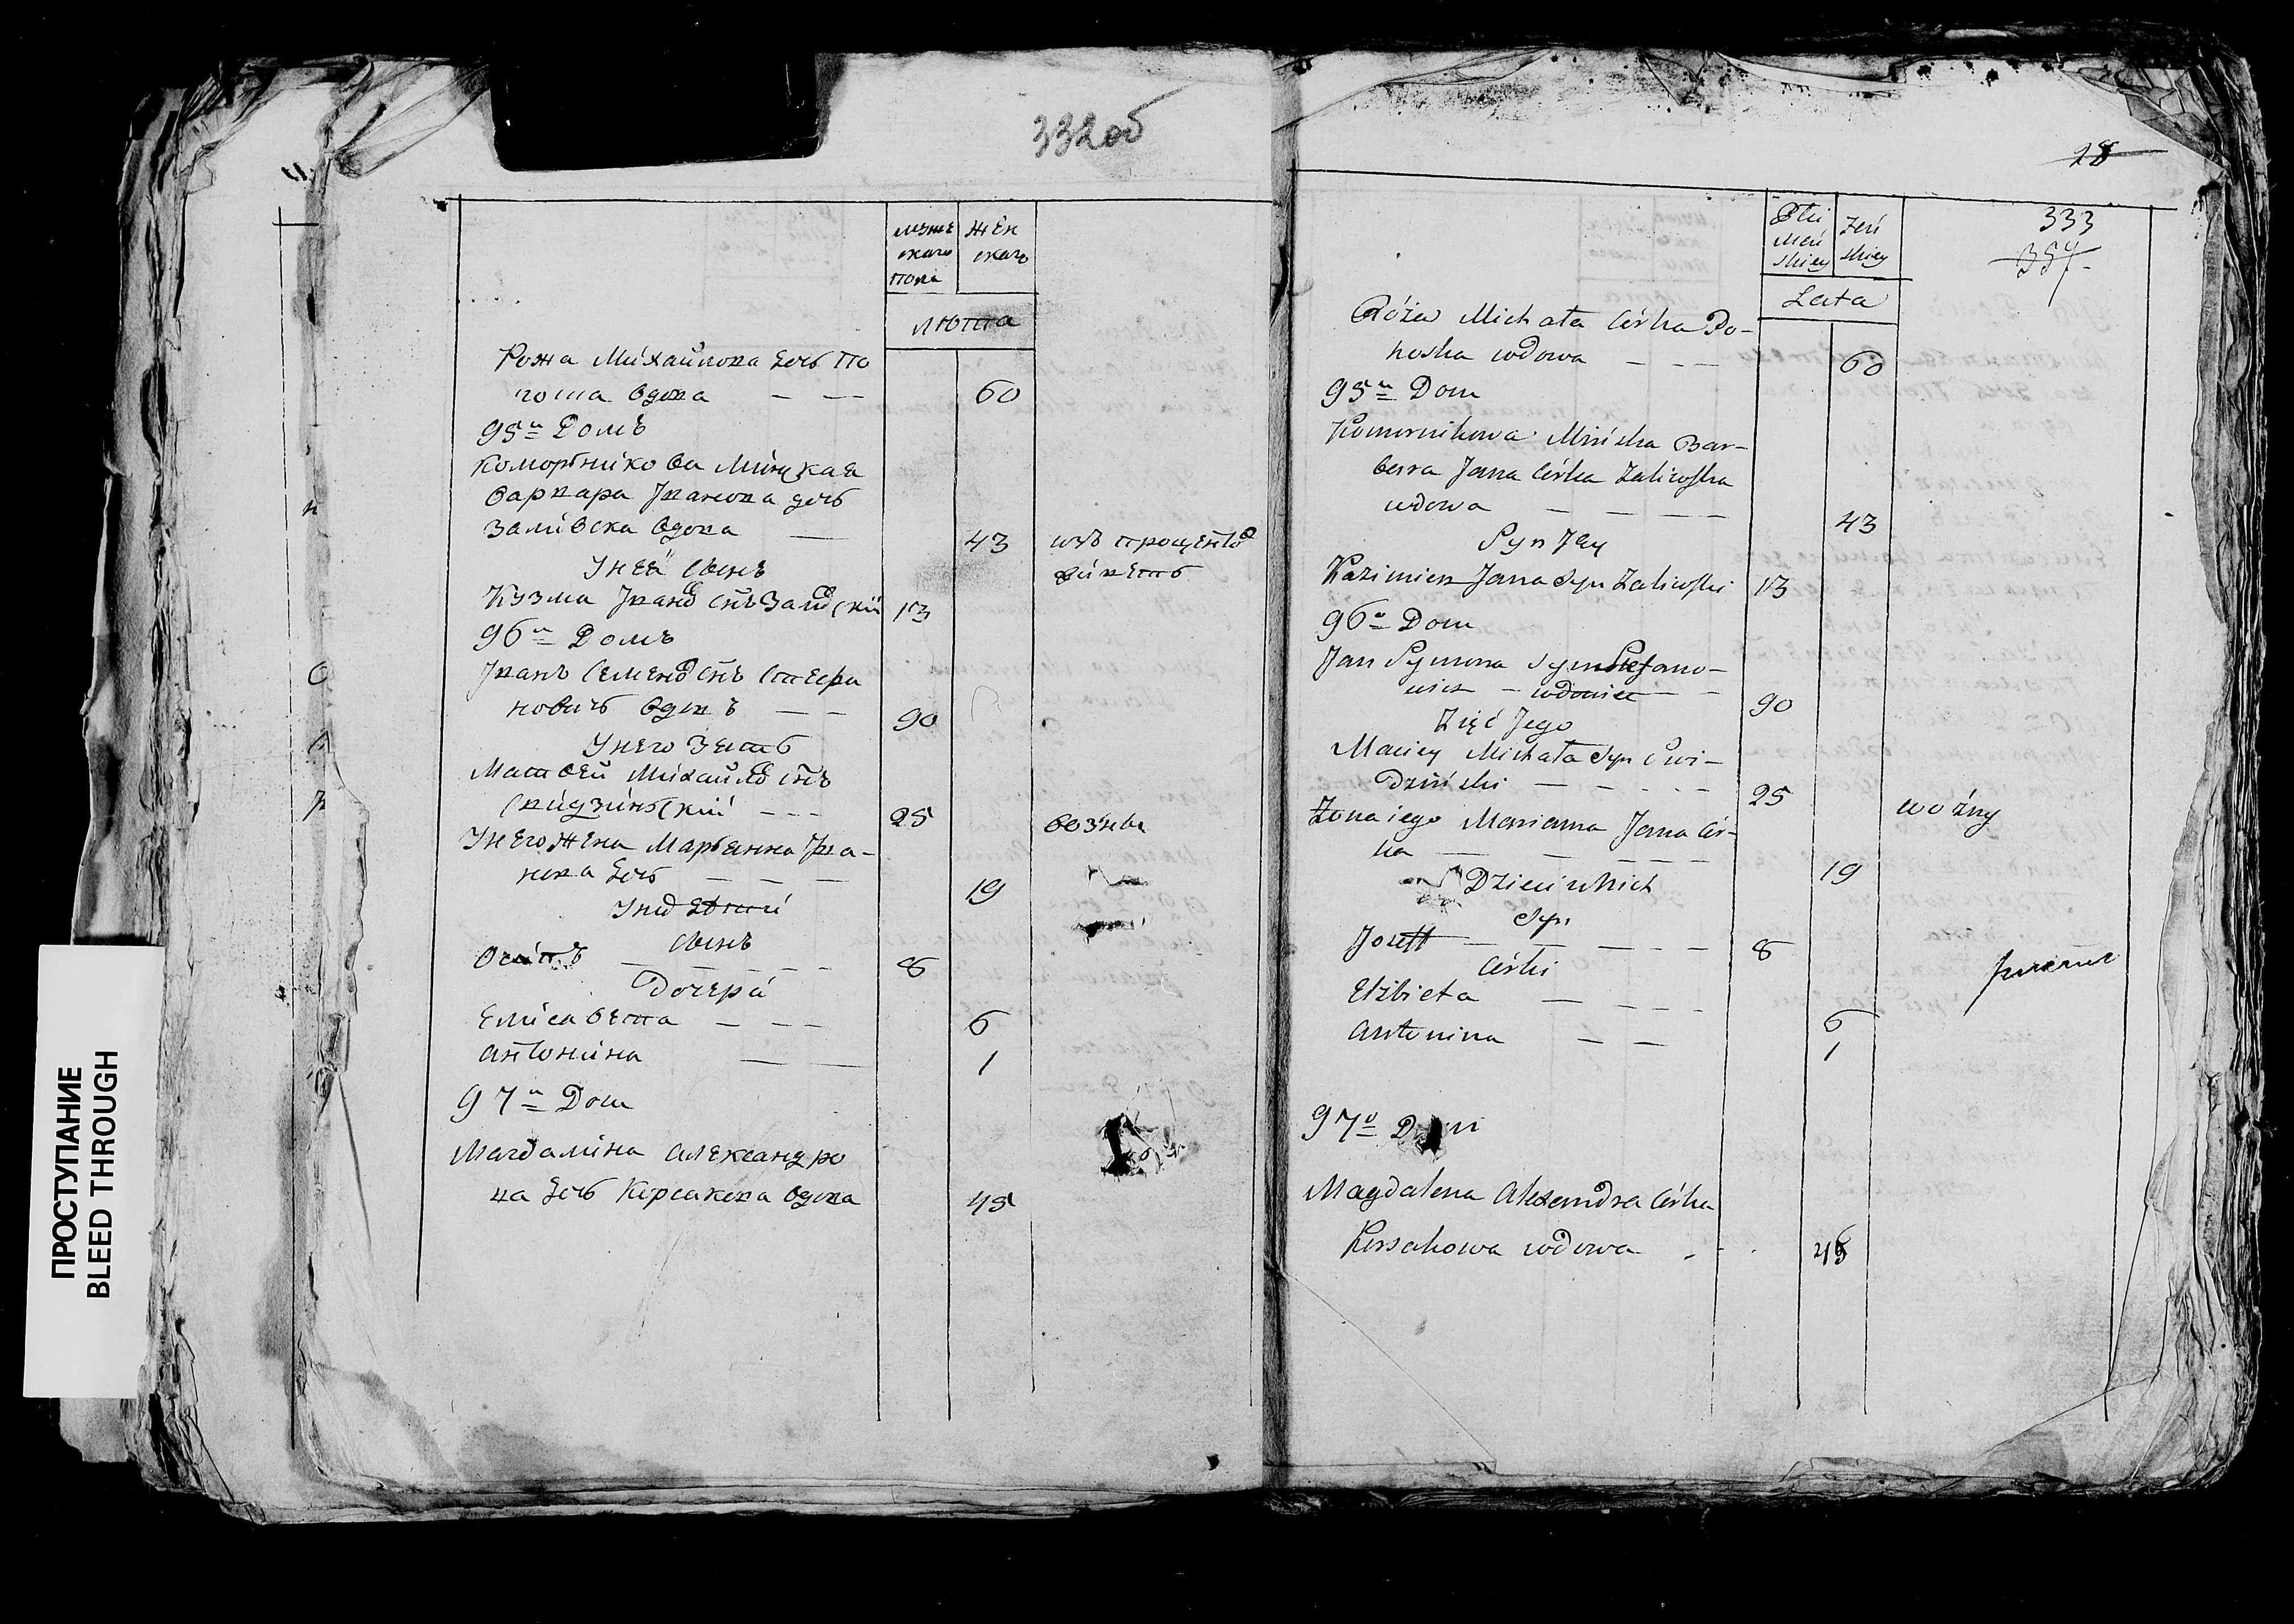 332об
мужескаго пола
женскаго
лѣта
Рожа Михайлова дочь По
ноша вдова — — 60
95й Домъ
Коморникова Минская
Варвара Иванова дочь
Заливска вдова — 43
У нея сынъ
Кузма 13
96й Домъ
Иванъ Стефа
новичъ вдовъ — — 90
У него зять
Матвей
Свидзинский — — — 25 возны
У него жена Марьянна Ива-
нова дочь — — — 19
сынъ
Осипъ — — — — 8
Дочери
Елисавета — — — 6
Антонина — — 1
97й Dom
Магдалина Александро
ва дочь Корсакова вдова 45
28
Płci Męskiey
Żeńskiey
333
357
Lata
Róża Michała Córka Po-
noska wdowa — — — 60
95й Dom
Komornikowa Mińska Bar-
bara Jana Córka Zaliwska
wdowa — — — — 43
Syn Jey
Kazimierz Jana Syn Zaliwski 13
96o Dom
Jan Symona Syn Stefano-
wicz — wdowiec — — 90
Zięć Jego
Maciey Michała Syn Swi-
dziński — — — — 25 woźny
Żona iego Marianna Jana Cór-
ka — — — — — 19
Dzieci u Nich
Syn
Jozeff — — — — — 8
Córki
Elżbieta — — — — 6
Antonina — — 1
97o Dom
Magdalena Alexandra Córka
Korsakowa wdowa 45
ПРОСТУПАНИЕ
BLEED THROUGH